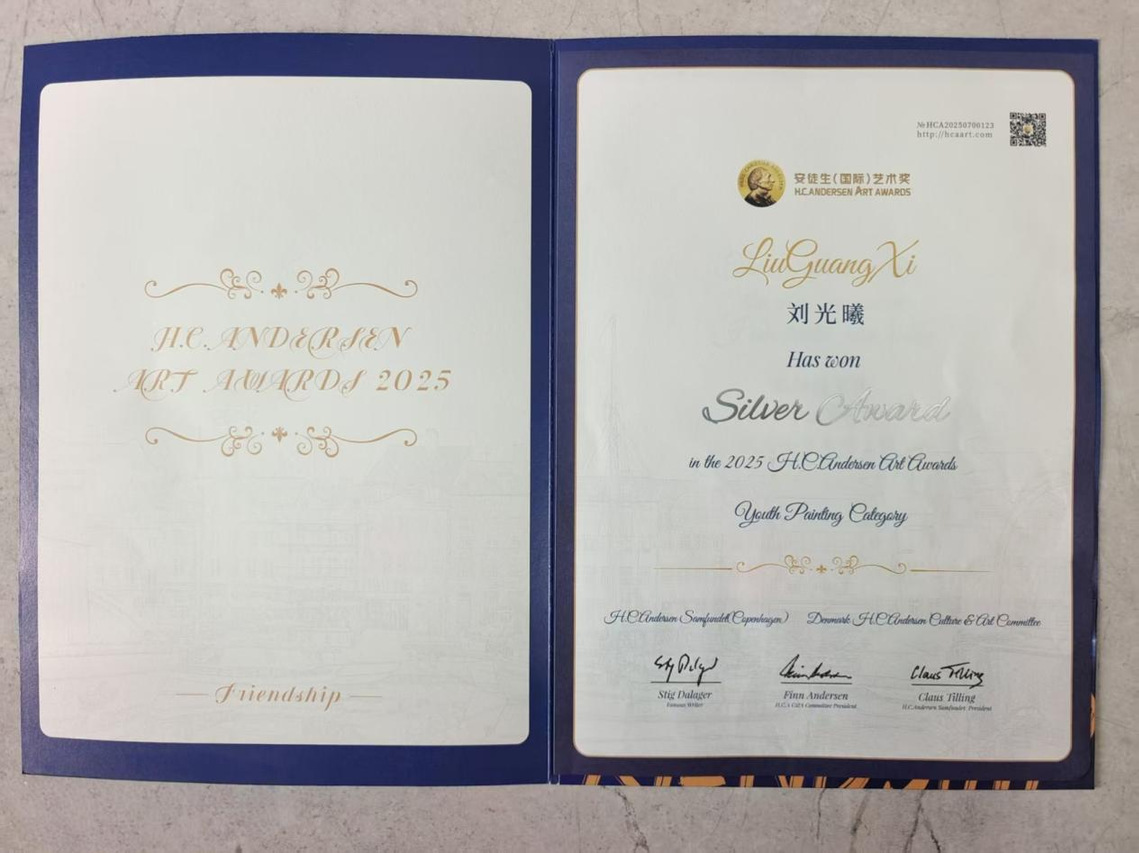 H.C. ANDERSEN
ART AWARDS 2025
Friendship
№HCA20250700123
http://hcaart.com
安徒生(国际)艺术奖
H.C.ANDERSEN ART AWARDS
LiuGuangXi
刘光曦
Has won
Silver Award
in the 2025 H.C.Andersen Art Awards
Youth Painting Category
H.C.Andersen Samfundet(Copenhagen) Denmark H.C.Andersen Culture & Art Committee
Stig Dalager Finn Andersen Claus Tilling
Famous Writer H.C.A C&A Committee President H.C.Andersen Samfundet, President